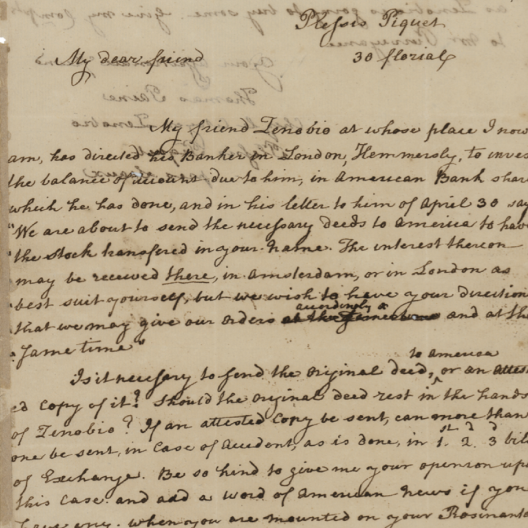 Plessis Piquet
30 floreal
My dear friend
My friend Zenobio at whose place I now
am, has directed his Banker in London, Hemmersly, to inves
the balance of account due to him, in American Bank shar
which he has done, and in his letter to him of April 30 say
"We are about to send the necessary deeds to America to hav
"the stock transfered in your name. The interest thereon
"may be received there, in Amsterdam, or in London as
"best suit yourself, but we wish to have your direction
accordingly
"that we may give our orders at the same time and at th
"same time"
to america
Is it necessary to send the original deed, or an attest
ed copy of it? Should the original deed rest in the hands
of Zenobio? If an attested copy be sent, can more than
one be sent, in case of accident, as is done, in 1st 2d 3 bil
of Exchange. Be so kind to give me your openion up
this case and add a word of american news if you
have any. when you are mounted on your Rosinant